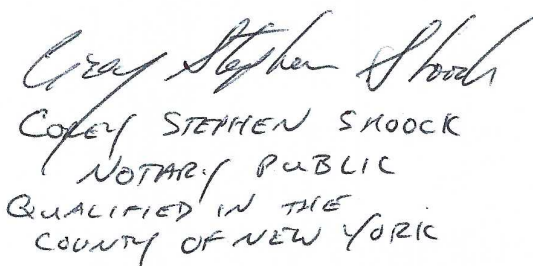 Corey Stephen Shoock
COREY STEPHEN SHOOCK
NOTARY PUBLIC
QUALIFIED IN THE
COUNTY OF NEW YORK